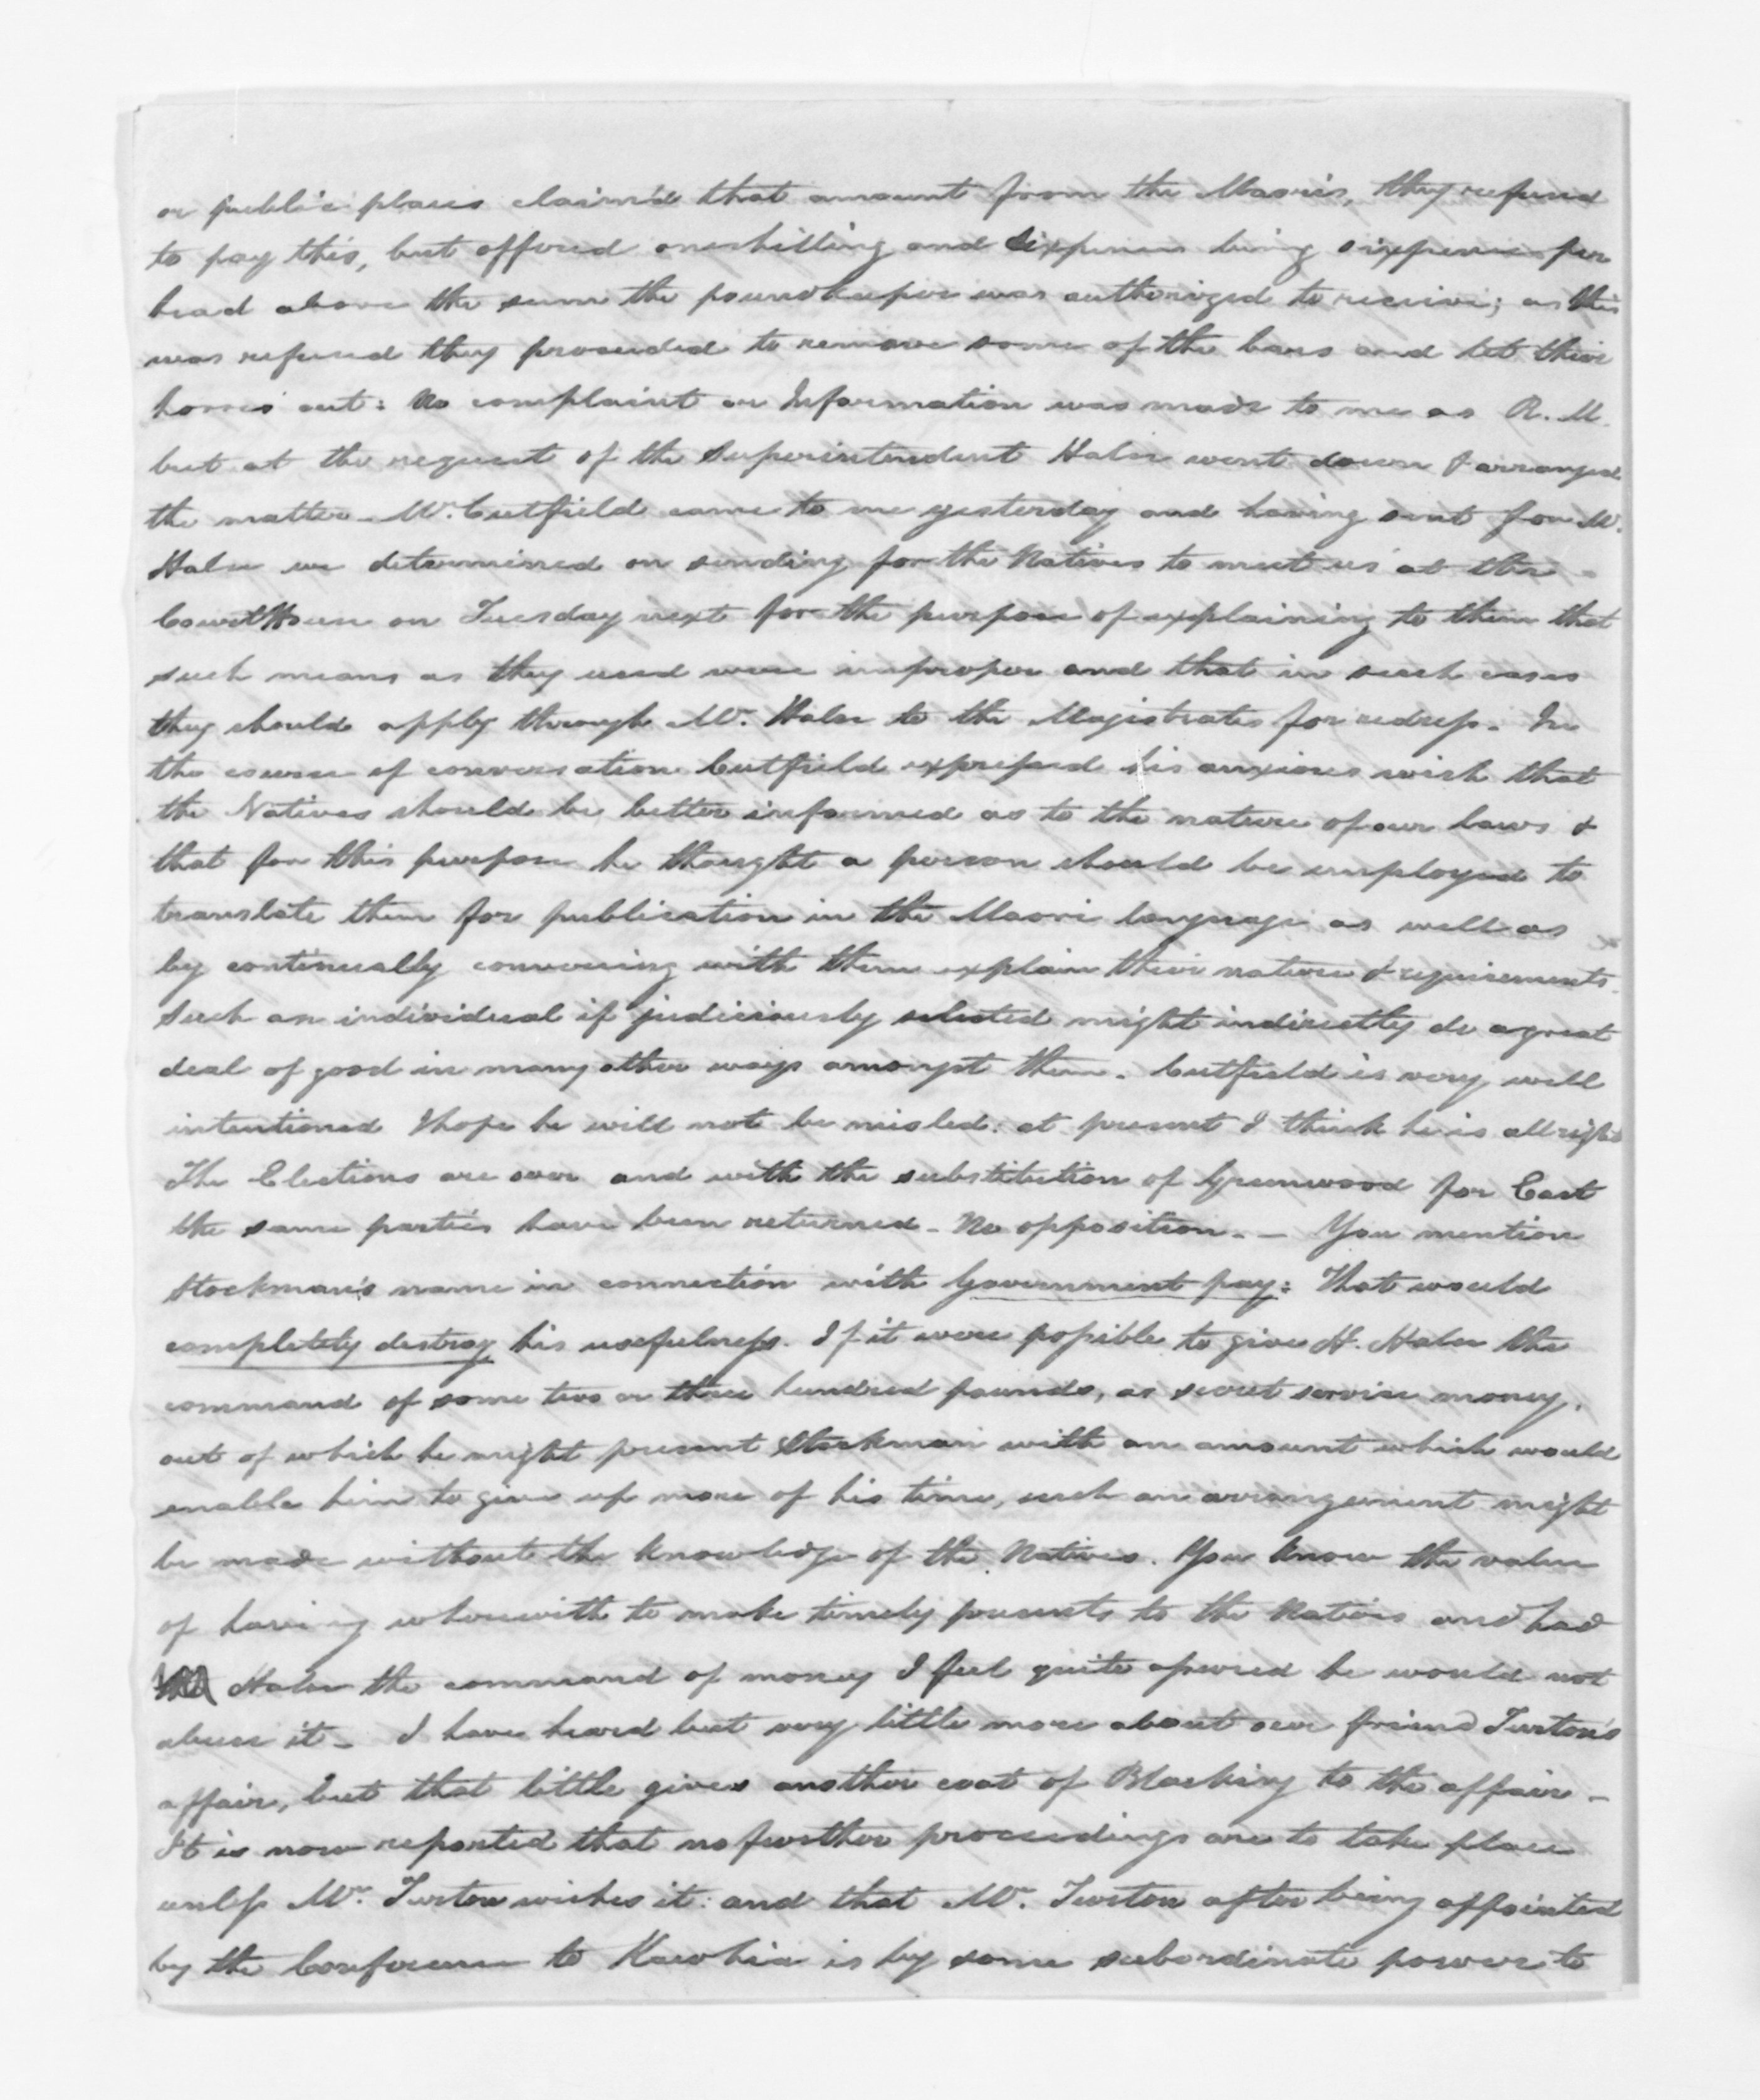 or public places claim'd that amount from the Maoris, they refused
to pay this, but offered oneshilling and Sixpence being sixpence per
head above the sum the poundkeeper was authorized to receive; as this
was refused they proceeded to remove some of the bars and let their
horses out: No complaint or Information was made to me as R. M.
but at the request of the Superintendent Halse went down & arranged
the matter - Mr. Cutfield came to me yesterday and having sent for Mr.
Halse we determined on sending for the Natives to meet us at the
CourtHouse on Tuesday next for the purpose of explaining to them that
such means as they used were improper and that in such cases
they should apply through Mr. Halse to the Magistrates for redress. In
the course of conversation Cutfield expressed his anxious wish that
the Natives should be better informed as to the nature of our laws &
that for this purpose he thought a person should be employed to
translate them for publication in the Maori language as well as
by continually conversing with them explain their nature & requirements.
Such an individual if judiciously selected might indirectly do a great
deal of good in many other ways amongst them. Cutfield is very well
intentioned I hope he will not be misled: at present I think he is all right
The Elections are over and with the substitution of Greenwood for East
the same parties have been returned - No opposition. - You mention
Stockman's name in connection with Government pay: That would
completely destroy his usefulness. If it were possible to give H. Halse the
command of some two or three hundred pounds, as secret service money,
out of which he might present Stockman with an amount which would
enable him to give up more of his time, such an arrangement might
be made without the knowledge of the Natives. You know the value
of having wherewith to make timely presents to the Natives and had
Halse the command of money I feel quite assured he would not
abuse it - I have heard but very little more about our friend Turton's
affair, but that little gives another coat of Blacking to the affair -
It is now reported that no further proceedings are to take place
unless Mr. Turton wishes it: and that Mr. Turton after being appointed
by the Conference to Kawhia is by some subordinate power to